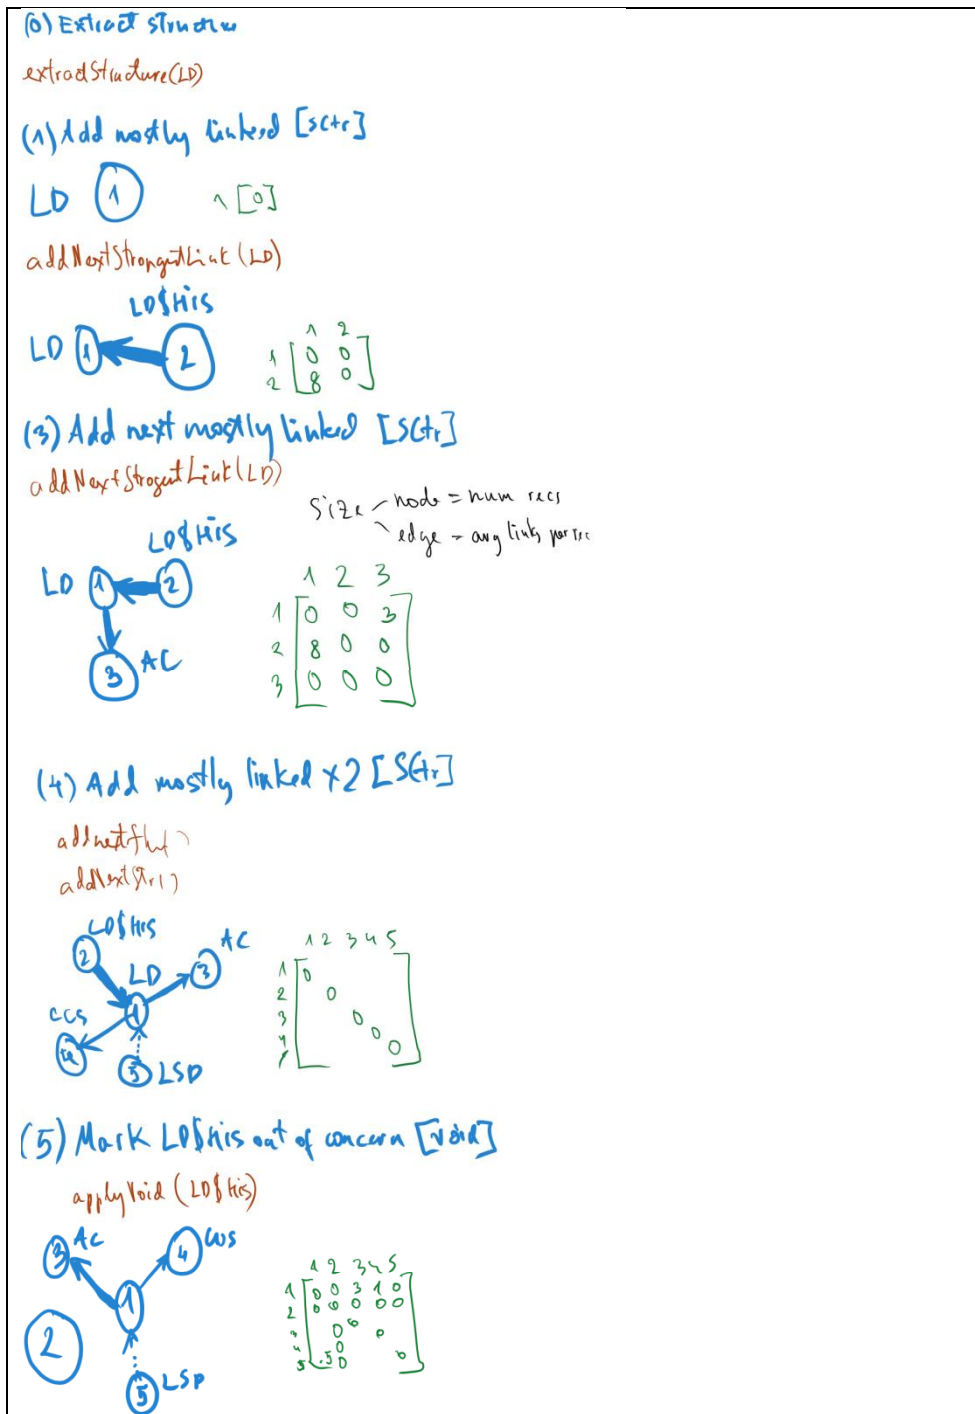 (0) Extract structure
extractStructure(LD)
(1) Add mostly linked [SCtr]
LD 1 1 [0]
addNextStrongestLink (LD)
LD$HIS
LD 1 2
1 2
1 0 0
2 8 0
(3) Add next mostly linked [SCtr]
addNextStrogestLink(LD)
size node = num recs
edge = avg links per rec
LD$HIS
LD 1 2
3 AC
1 2 3
1 0 0 3
2 8 0 0
3 0 0 0
(4) Add mostly linked x2 [SCtr]
addNextStr()
LD$HIS
2 LD 3 AC
CCS 1
4
5 LSD
1 2 3 4 5
1 0
2 0
3 0
4 0
0
(5) Mark LD$HIS out of concern [void]
applyVoid (LD$HIS)
3 AC 4
1
2
5 LSP
1 2 3 4 5
1 0 0 3 1 0
2 0 0 0 0 0
0 0
0 0
5 .5 0 0